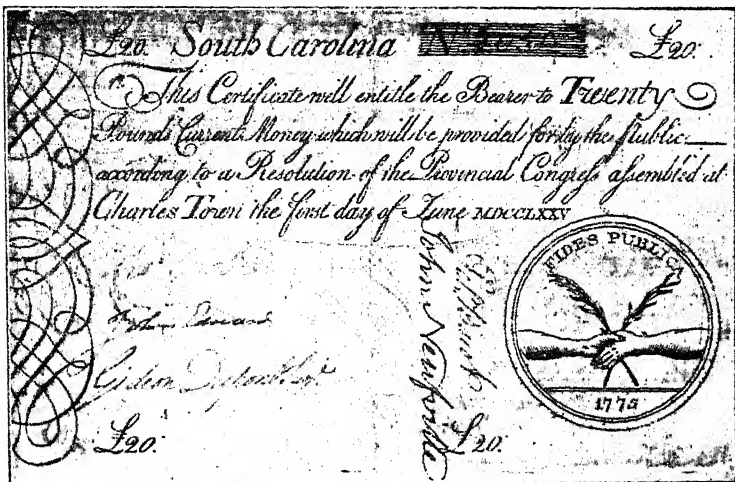 £20. South Carolina No £20.
This Certificate will entitle the Bearer to Twenty
Pounds Current Money which will be provided for by the Public
according to a Resolution of the Provincial Congress assembled at
Charles Town the first day of June MDCCLXXV
FIDES PUBLICA
John Edwards
Gideon Dupont Junr
John Neufville
1775
£20. £20.